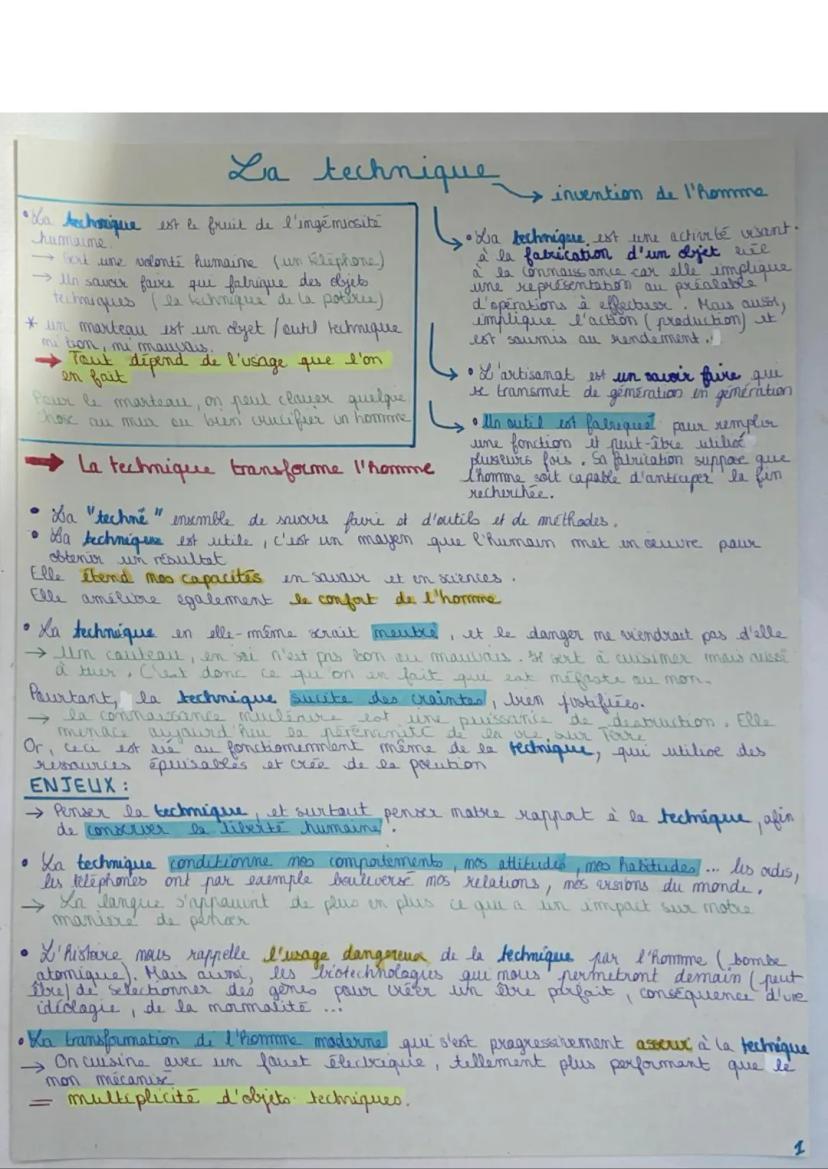 La technique
→ invention de l'homme
• La technique est le fruit de l'ingéniosité
humaine.
→ Sert une volonté humaine (un téléphone)
→ Un savoir faire qui fabrique des objets
techniques (la technique de la poterie)
* un marteau est un objet / outil technique
ni bon, ni mauvais.
→ Tout dépend de l'usage que l'on
en fait
Pour le marteau, on peut clouer quelque
chose au mur ou bien crucifier un homme
• La technique est une activité visant
à la fabrication d'un objet liée
à la connaissance car elle implique
une représentation au préalable
d'opérations à effectuer. Mais aussi,
implique l'action (production) et
est soumis au rendement.
• L'artisanat est un savoir faire qui
se transmet de génération en génération
• Un outil est fabriqué pour remplir
une fonction et peut-être utilisé
plusieurs fois. Sa fabrication suppose que
l'homme soit capable d'anticiper la fin
recherchée.
→ La technique transforme l'homme
• La "techné" ensemble de savoirs faire et d'outils et de méthodes.
• La technique est utile, c'est un moyen que l'humain met en œuvre pour
obtenir un résultat
Elle étend nos capacités en savoir et en sciences.
Elle améliore également le confort de l'homme
• La technique en elle-même serait neutre, et le danger ne viendrait pas d'elle
→ Un couteau, en soi n'est pas bon ou mauvais. Il sert à cuisiner mais aussi
à tuer. C'est donc ce qu'on en fait qui est néfaste ou non.
Pourtant, la technique sucite des craintes, bien justifiées.
→ la connaissance nucléaire est une puissance de destruction. Elle
menace aujourd'hui la pérennité de la vie sur Terre
Or, ceci est lié au fonctionnement même de la technique, qui utilise des
ressources épuisables et crée de la polution
ENJEUX :
→ Penser la technique, et surtout penser notre rapport à la technique, afin
de conserver la liberté humaine.
• La technique conditionne nos comportements, nos attitudes, nos habitudes... les ordis,
les téléphones ont par exemple bouleversé nos relations, nos visions du monde.
→ La langue s'appauvrit de plus en plus ce qui a un impact sur notre
manière de penser
• L'histoire nous rappelle l'usage dangereux de la technique par l'homme (bombe
atomique). Mais aussi, les biotechnologies qui nous permetront demain (peut
être) de sélectionner des gènes pour créer un être parfait, conséquence d'une
idéologie, de la normalité ...
• La transformation de l'homme moderne qui s'est progressivement asservi à la technique
→ On cuisine avec un fouet électrique, tellement plus performant que le
non mécanisé
= multiplicité d'objets techniques.
1